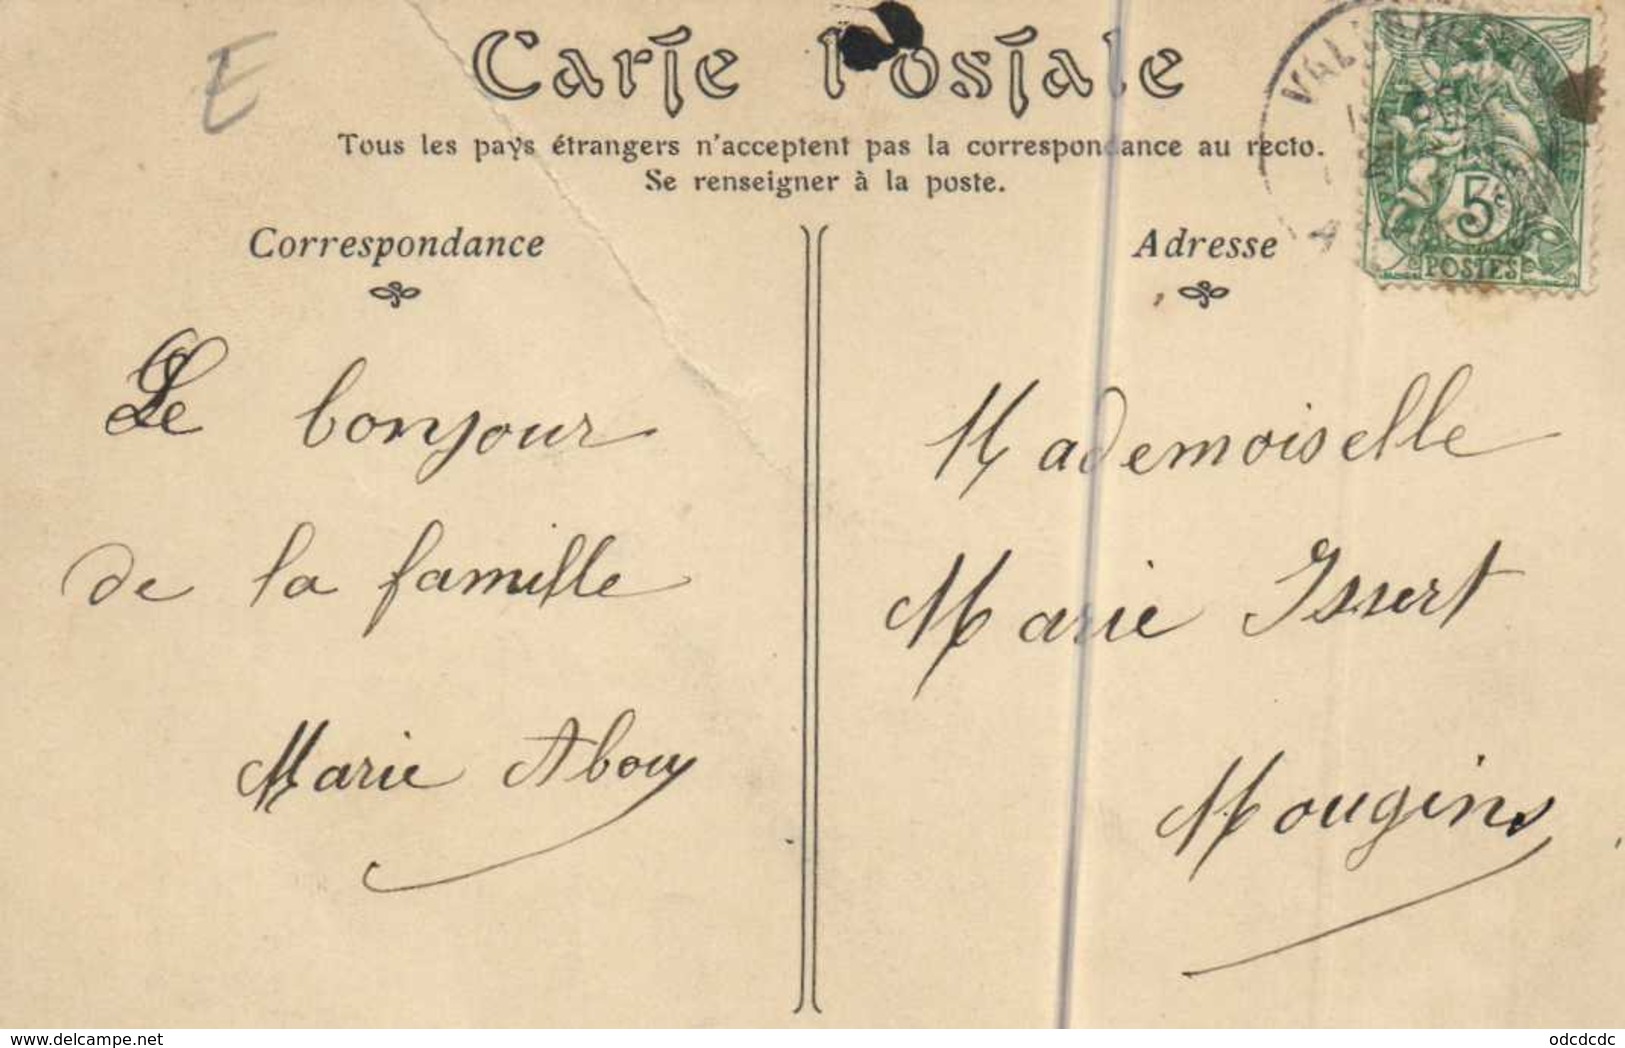 E
Carte Postale
Tous les pays étrangers n'acceptent pas la correspondance au recto.
Se renseigner à la poste.
Correspondance
Le bonjour
de la famille
Marie Abouy
Adresse
5c
POSTES
Mademoiselle
Marie Issert
Mougins
www.delcampe.net
odcdcdc